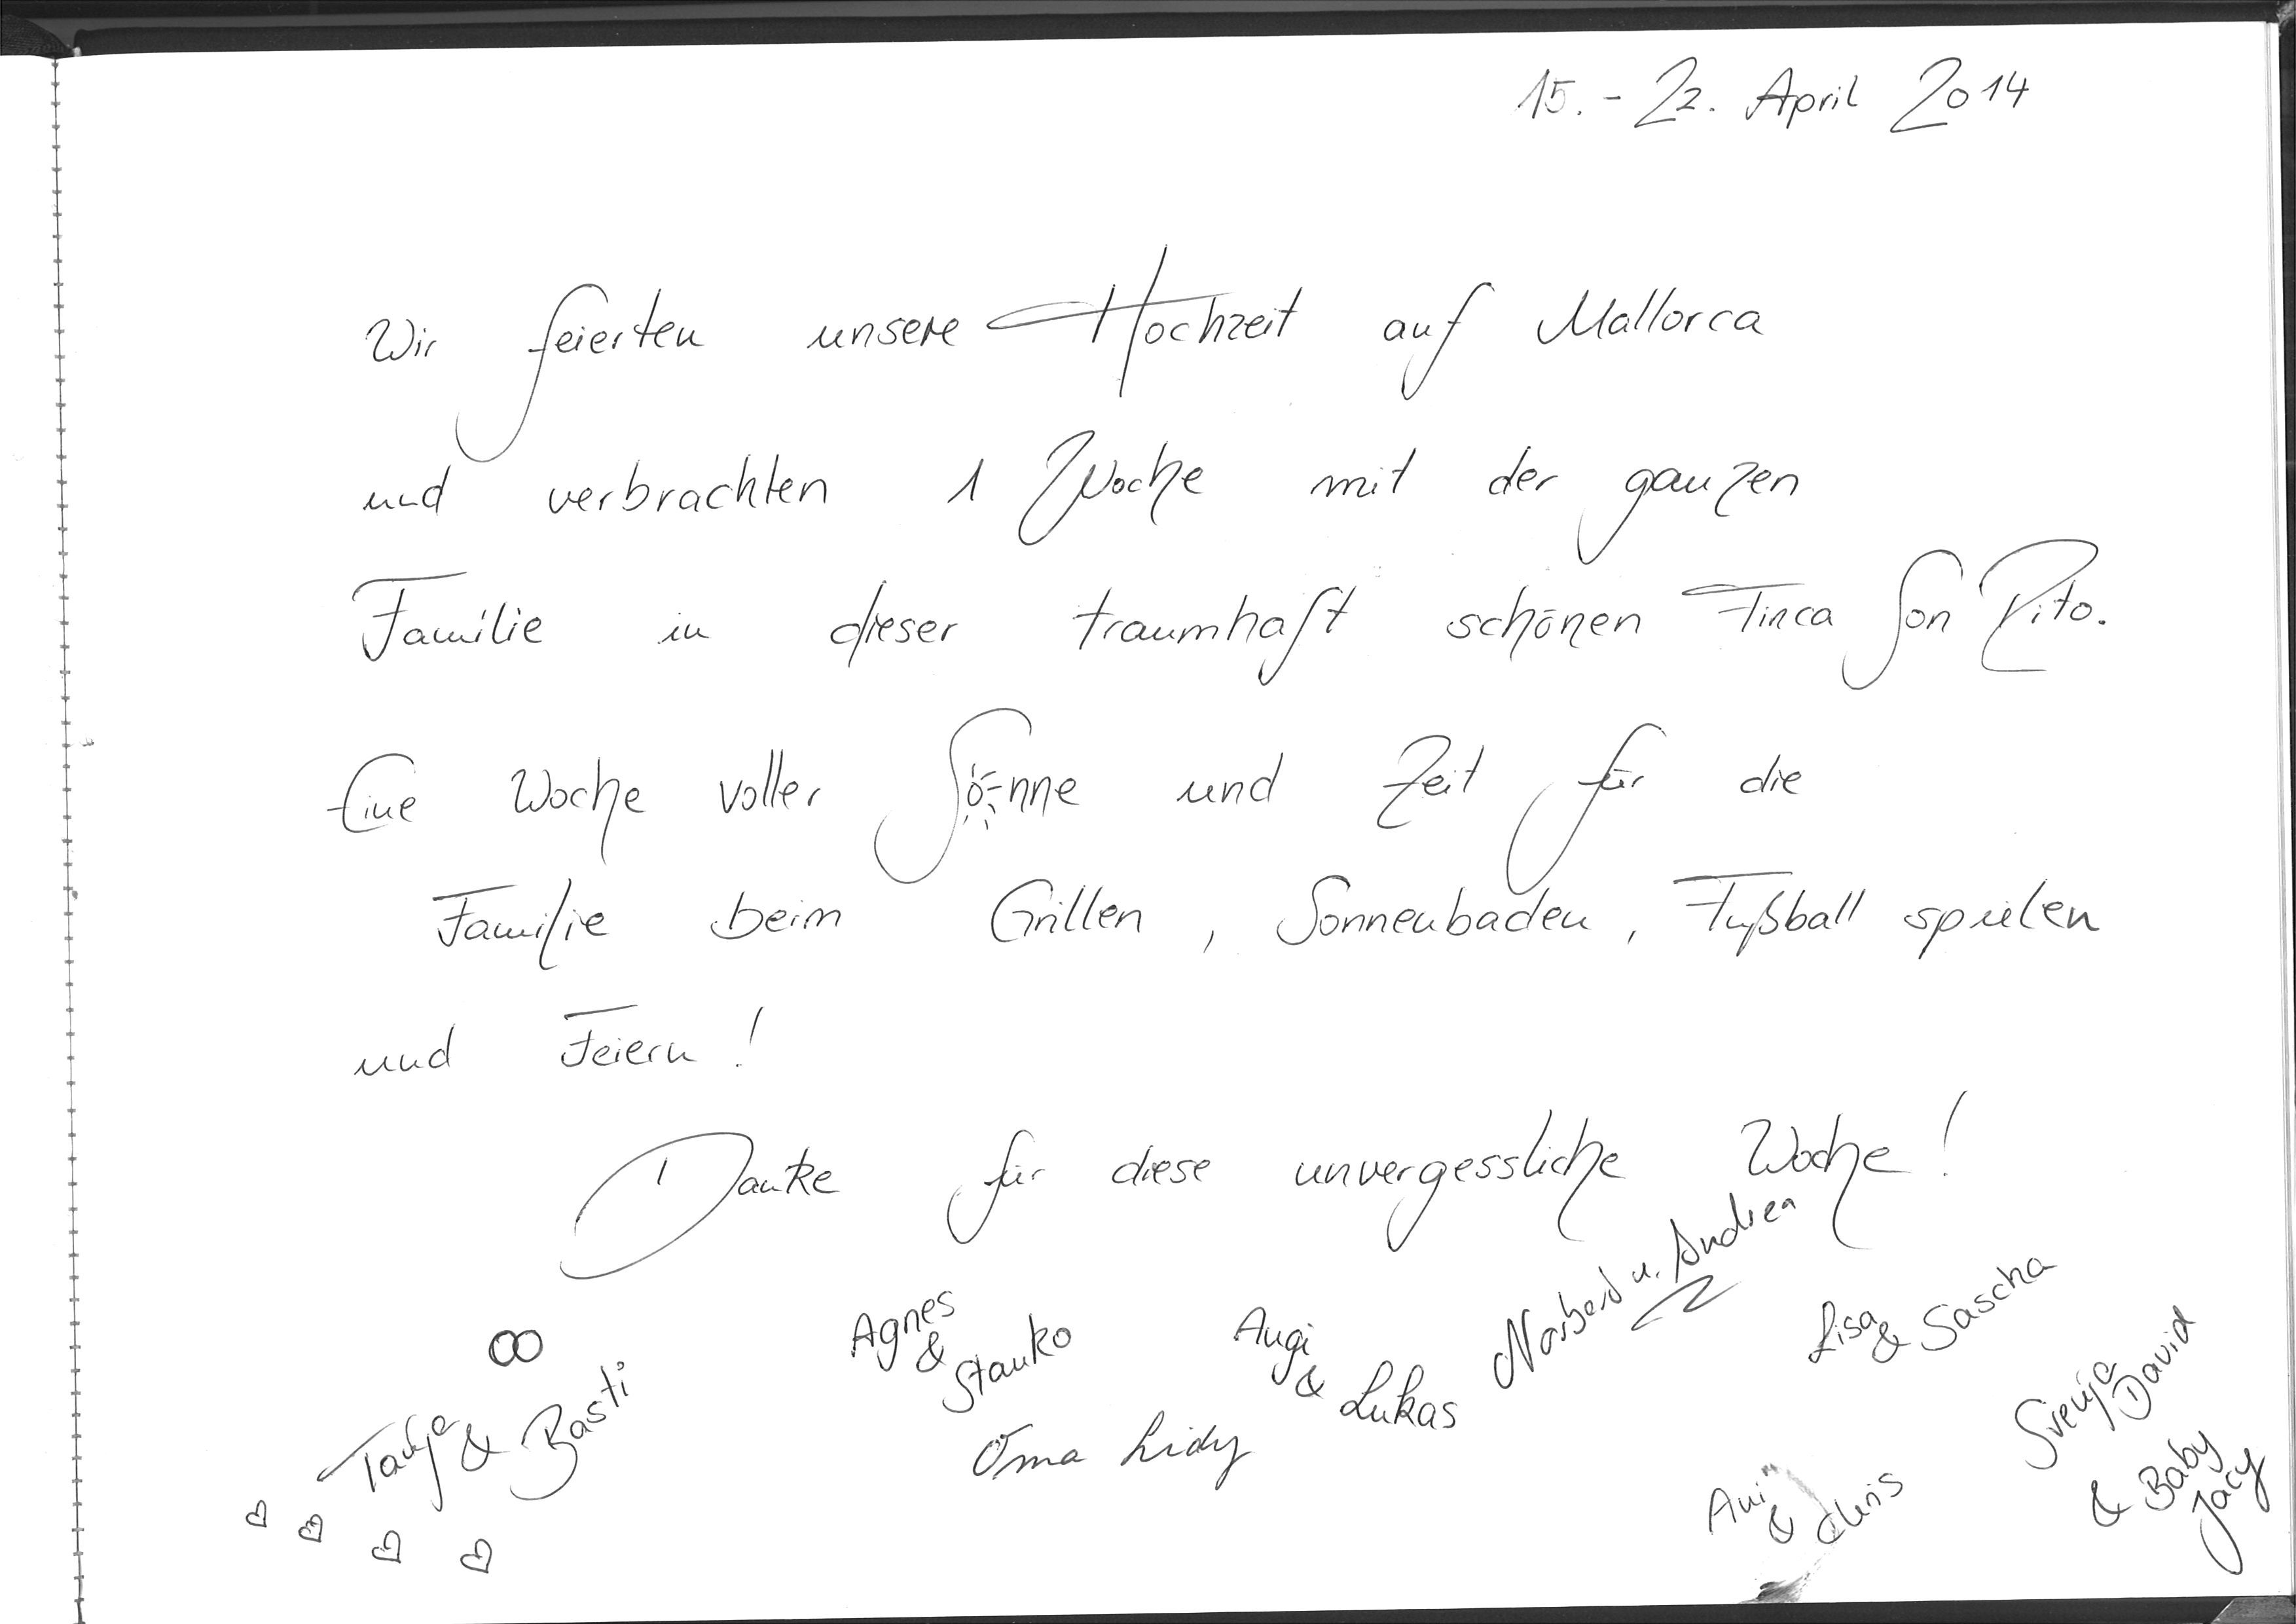 15. - 22. April 2014
Wir feierten unsere Hochzeit auf Mallorca
und verbrachten 1 Woche mit der ganzen
Familie in dieser traumhaft schönen Finca Son Vito.
Eine Woche voller Sonne und Zeit für die
Familie beim Grillen, Sonnenbaden, Fußball spielen
und Feiern!
Danke für diese unvergessliche Woche!
Tanja & Basti
Agnes
&
Stanko
Oma Lidy
Angi
&
Lukas
Norbert u. Andrea
Lisa & Sascha
Ani
&
Chris
Svenja
David
& Baby
Jacy